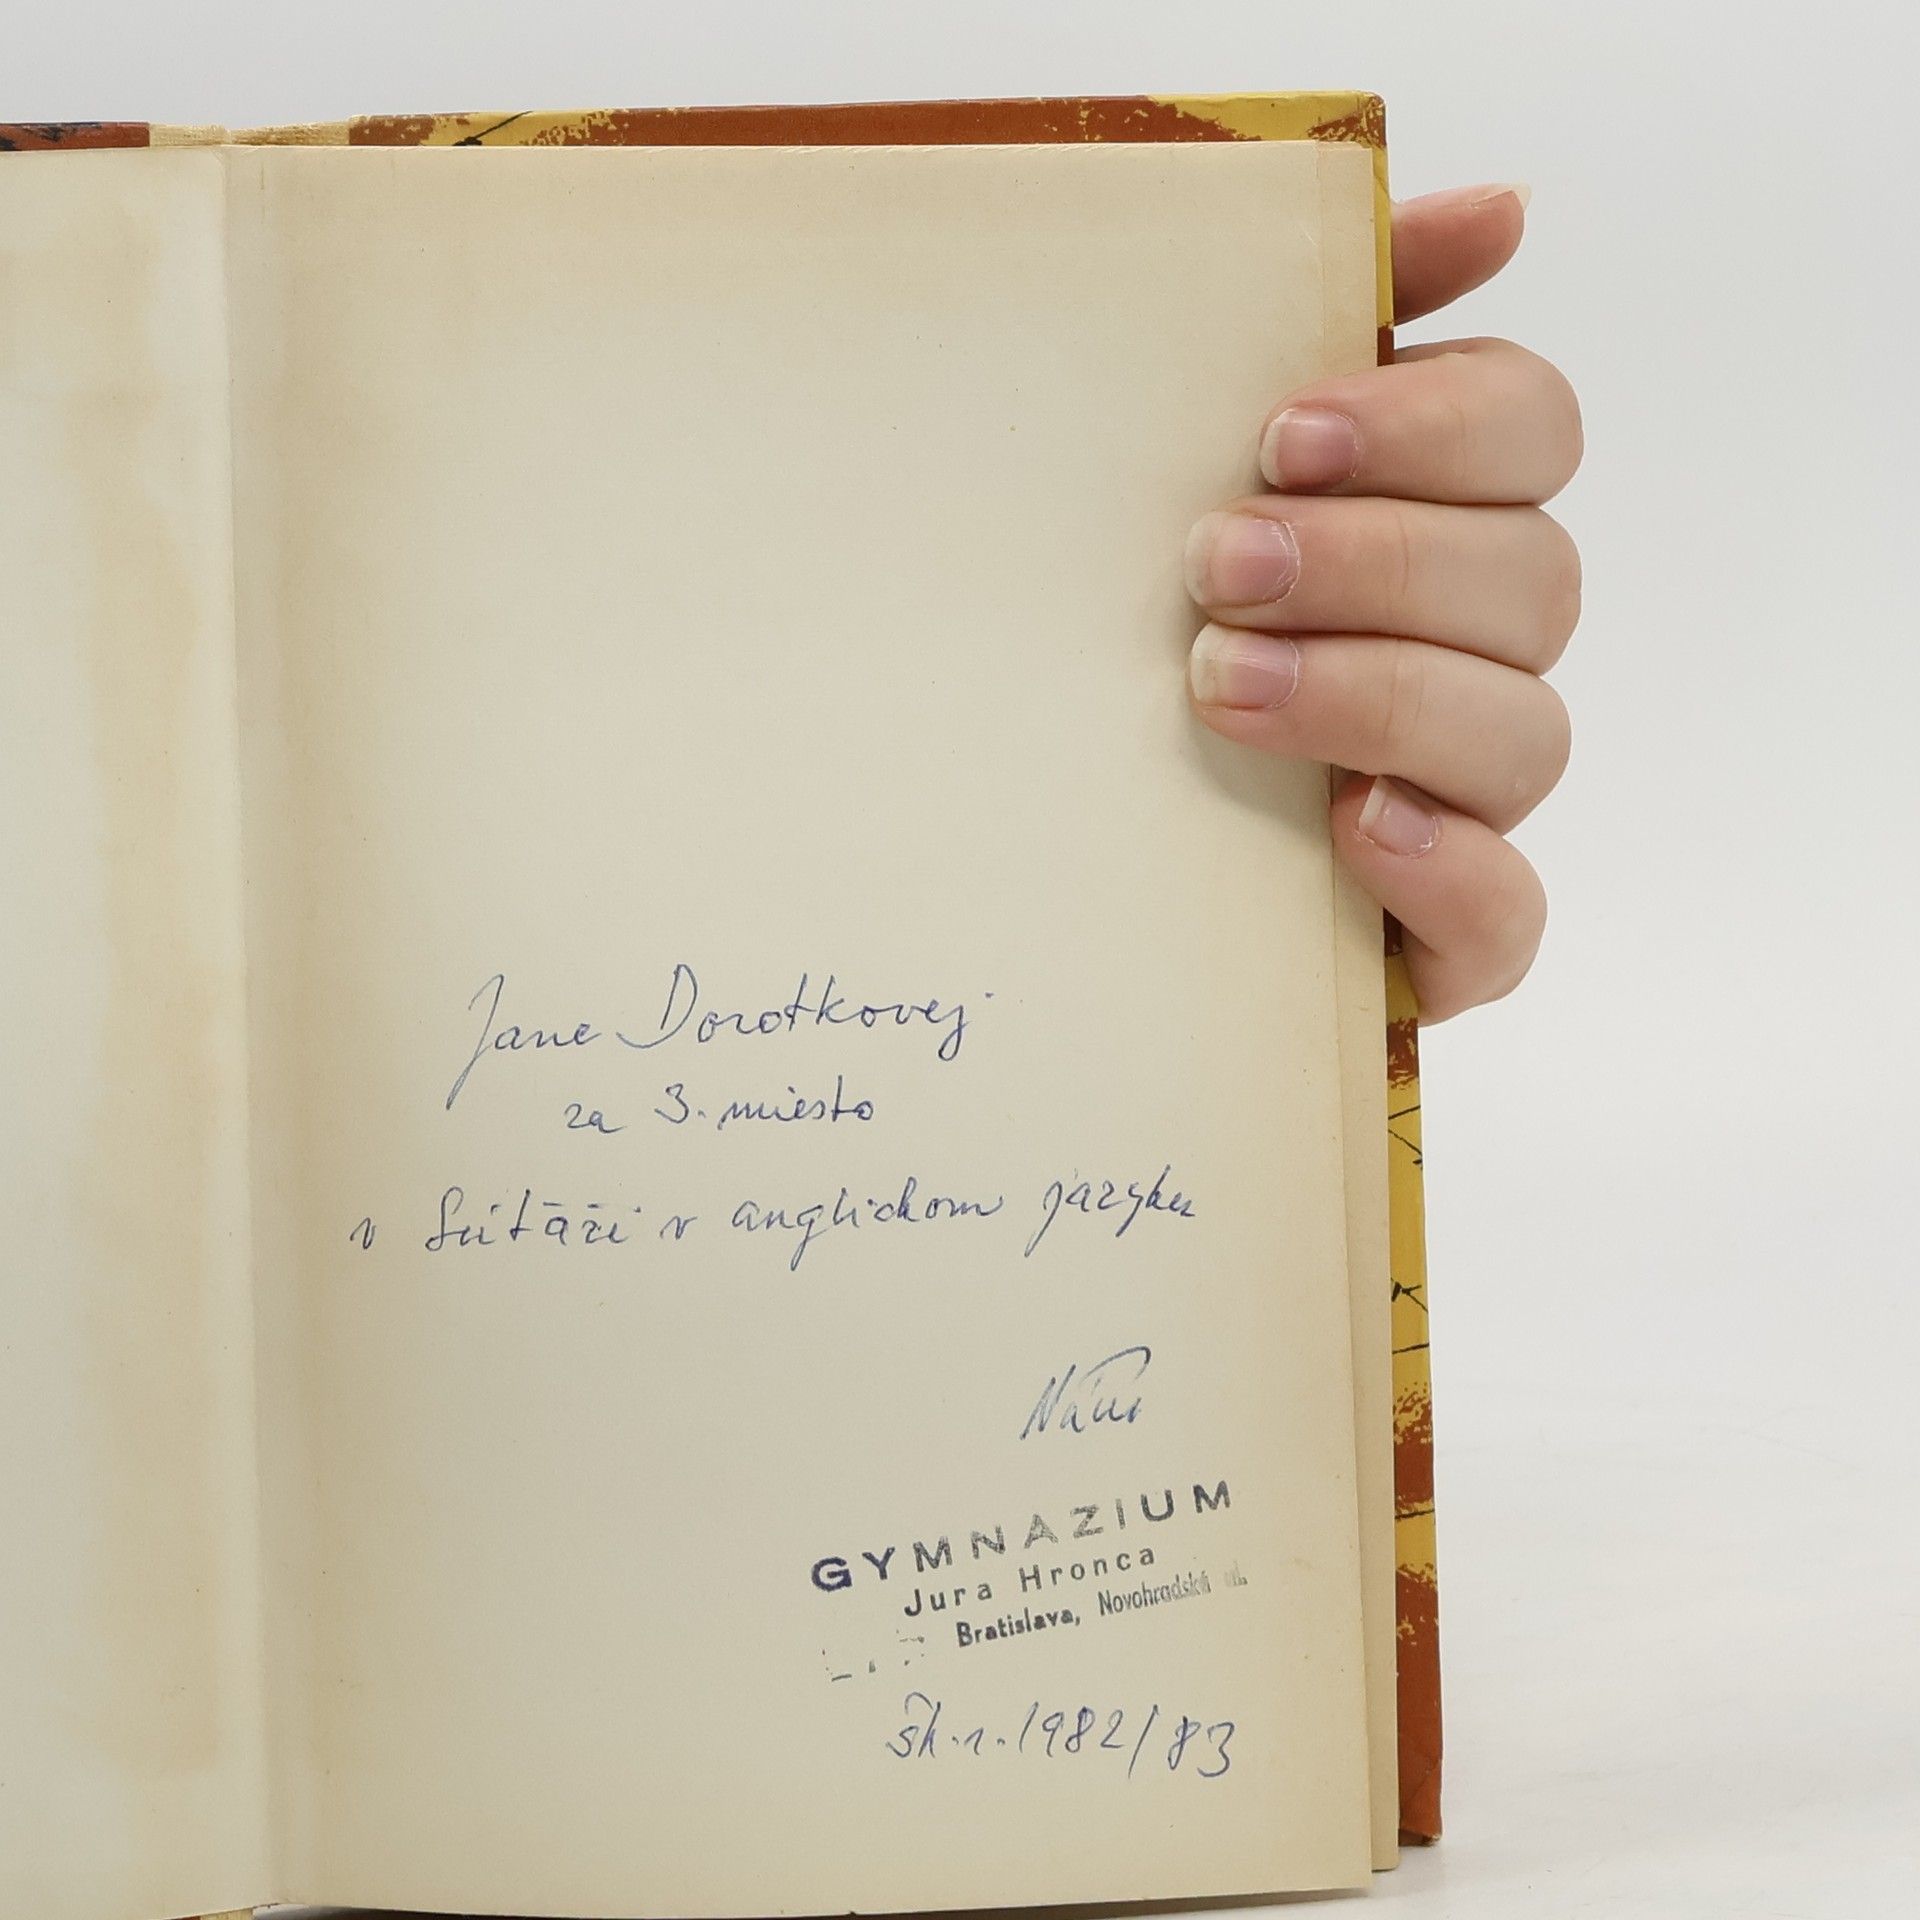 Jane Dorotkovej
za 3. miesto
v súťaži v anglickom jazyku
GYMNAZIUM
Jura Hronca
Bratislava, Novohradská ul.
šk. r. 1982/83